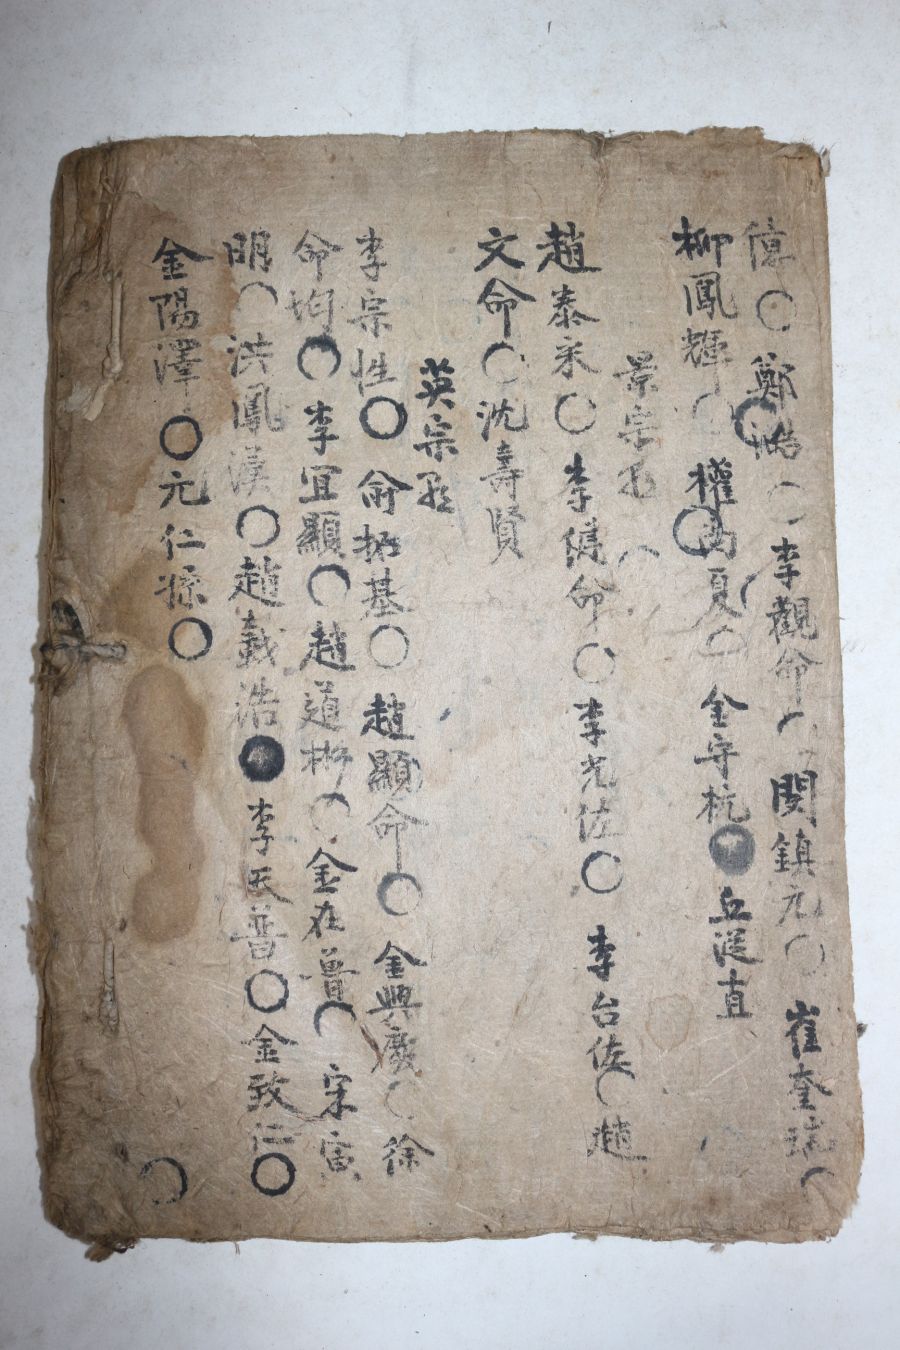 鄭澔○李觀命○閔鎭元○崔奎瑞○
柳鳳輝○權尚夏○金宇杭○丘從直
景宗
趙泰采○李健命○李光佐○李台佐○趙
文命○沈壽賢
英宗
李宗性○兪拓基○趙顯命○金興慶○徐
命均○李宜顯○趙道彬○金在魯○宋寅
明○洪鳳漢○趙載浩○李天普○金致仁○
金陽澤○元仁孫○